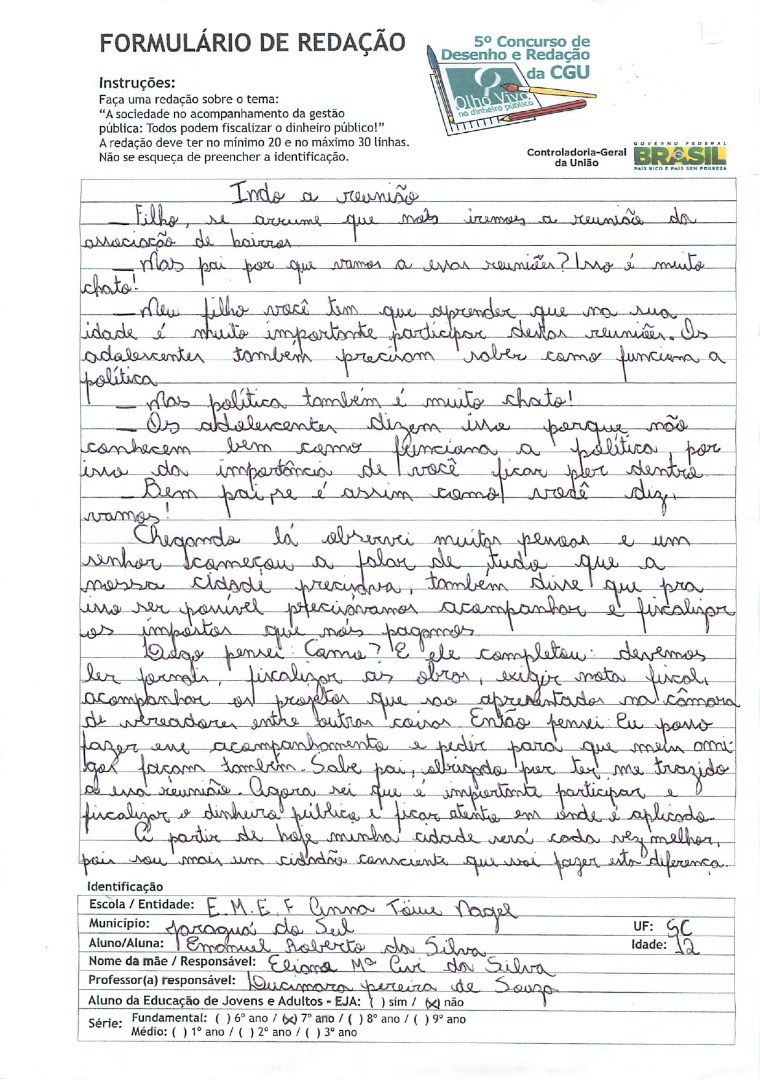 FORMULÁRIO DE REDAÇÃO
5º Concurso de
Desenho e Redação
da CGU
Olho Vivo
no dinheiro público
Instruções:
Faça uma redação sobre o tema:
“A sociedade no acompanhamento da gestão
pública: Todos podem fiscalizar o dinheiro público!”
A redação deve ter no mínimo 20 e no máximo 30 linhas.
Não se esqueça de preencher a identificação.
Controladoria-Geral
da União
GOVERNO FEDERAL
BRASIL
PAÍS RICO É PAÍS SEM POBREZA
Indo a reunião
— Filho, se arrume que nós iremos a reunião da
associação de bairros
— Mas pai por que vamos a essas reuniões? Isso é muito
chato!
— Meu filho você tem que aprender que na sua
idade é muito importante participar destas reuniões. Os
adolescentes tambem precisam saber como funciona a
política
— Mas política também é muito chato!
— Os adolescentes dizem isso porque não
conhecem bem como funciona a política, por
isso da importância de você ficar por dentro
— Bem pai, se é assim como você diz,
vamos!
Chegando lá observei muitas pessoas e um
senhor começou a falar de tudo que a
nossa cidade precisava, também disse que pra
isso ser possível precisávamos acompanhar e fiscalizar
os impostos que nós pagamos.
Logo pensei: Como? E ele completou: devemos
ler jornais, fiscalizar as obras, exigir nota fiscal,
acompanhar os projetos que sao apresentados na câmara
de vereadores entre outras coisas. Então pensei: Eu posso
fazer esse acompanhamento e pedir para que meus ami
gos façam também. Sabe pai, obrigado por ter me trazido
a essa reunião. Agora sei que é importante participar e
fiscalizar o dinheiro público e ficar atento em onde é aplicado.
A partir de hoje minha cidade será cada vez melhor,
pois sou mais um cidadão consciente que vai fazer esta diferença.
Identificação
Escola / Entidade: E.M.E.F Anna Töwe Nagel
Município: Jaraguá do Sul UF: SC
Aluno/Aluna: Emanuel Roberto da Silva Idade: 12
Nome da mãe / Responsável: Eliane Mª Civi da Silva
Professor(a) responsável: Lucimara pereira de Souza
Aluno da Educação de Jovens e Adultos - EJA: ( ) sim / (x) não
Série: Fundamental: ( ) 6º ano / (x) 7º ano / ( ) 8º ano / ( ) 9º ano
Médio: ( ) 1º ano / ( ) 2º ano / ( ) 3º ano